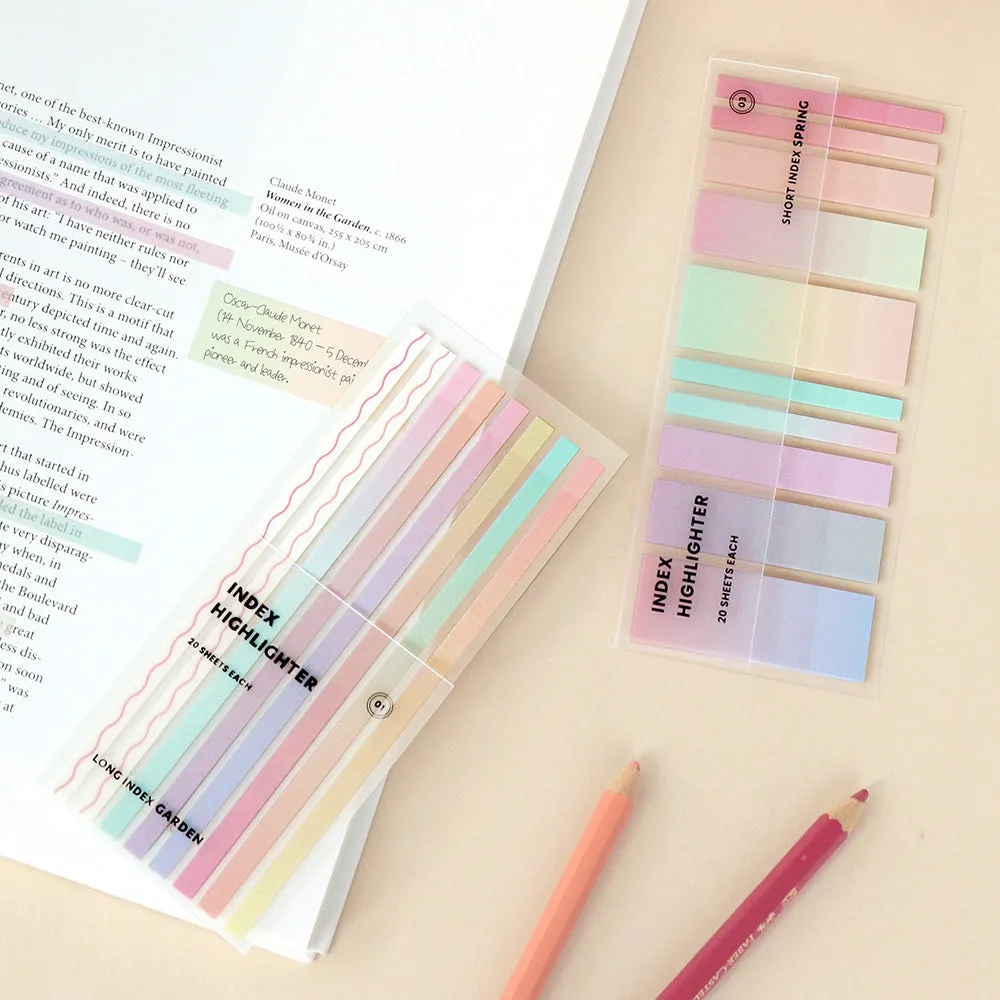 net, one of the best-known Impressionist
ories ... My only merit is to have painted
oduce my impressions of the most fleeting
cause of a name that was applied to
essionists." And indeed, there is no
agreement as to who was, or was not,
of his art: "I have neither rules nor
or watch me painting – they'll see
rents in art is no more clear-cut
directions. This is a motif that
entury depicted time and again.
r, no less strong was the effect
tly exhibited their works
ts worldwide, but showed
ting and of seeing. In so
revolutionaries, and were
demies. The Impression-
rt that started in
hus labelled were
s picture Impres-
led the label in
te very disparag-
y when, in
nedals and
he Boulevard
and bad
great
less dis-
on soon
" was
at
Claude Monet
Women in the Garden, c. 1866
Oil on canvas, 255 x 205 cm
(100½ x 80¾ in.)
Paris, Musée d'Orsay
Oscar-Claude Monet
(14 November 1840 – 5 Decem
was a French impressionist pai
pioneer and leader.
INDEX
HIGHLIGHTER
20 SHEETS EACH
01
LONG INDEX GARDEN
03
SHORT INDEX SPRING
INDEX
HIGHLIGHTER
20 SHEETS EACH
FABER-CASTELL